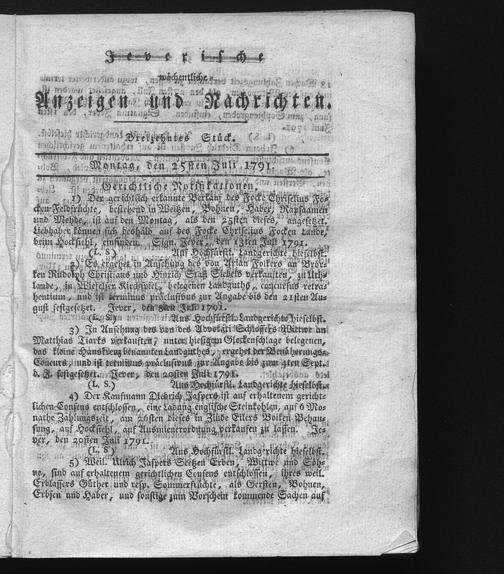 Jeverische
wöchentliche
Anzeigen und Nachrichten.
Dreizehntes Stück.
Montag, den 25sten Juli 1791.
Gerichtliche Notifikationen
1) Der gerichtlich erkannte Verkauf des Focke Chriselius Fo-
cken Feldfrüchte, bestehend in Weitzen, Bohnen, Haber, Rapsaamen
und Mehde, ist auf den Montag, als den 25sten dieses, angesetzt.
Liebhaber können sich deshalb auf des Focke Chriselius Focken Lande,
beim Hocksiehl, einfinden. Sign. Jever, den 13ten Juli 1791.
(L. S.) Aus Hochfürstl. Landgerichte hieselbst.
2) Es ergehet in Ansehung des von Arian Folkers an
ken Rudolph Christians und Hinrich verkauften, zu
lande, in Wiefelser Kirchspiel, belegenen Landguths, cum effectu retrac
hentium, und ist terminus präclusivus zur Angabe bis den 21sten Au-
gust festgesetzt. Jever, den 8ten Juli 1791.
(L. S.) Aus Hochfürstl. Landgerichte hieselbst.
3) In Ansehung des von des Advocati Schlossers Wittwe an
Matthias Tiarks verkauften, unter hiesigem Glockenschlage belegenen,
das kleine benannten Landguthes, ergehet der Benäherungs-
Coneurs, und ist terminus präclusivus zur Angabe bis zum 3ten Sept.
d. J. festgesetzt. Jever, den 20sten Juli 1791.
(L. S.) Aus Hochfürstl. Landgerichte hieselbst.
4) Der Kaufmann Diedrich Jaspers ist auf erhaltenem gericht-
lichen Consens entschlossen, eine Ladung englische Steinkohlen, auf 6 Mo-
nathe Zahlungszeit, am 26sten dieses in Eilers Boiken Behau-
sung, auf Hocksiehl, auf Ausmienerordnung verkaufen zu lassen. Je-
ver, den 20sten Juli 1791.
(L. S.) Aus Hochfürstl. Landgerichte hieselbst.
5) Weil. Ulrich Jaspers Seetzen Erben, Wittwe und Söh-
ne, sind auf erhaltenem gerichtlichen Consens entschlossen, ihres weil.
Erblassers Güther und resp. Sommerfrüchte, als Gersten, Bohnen,
Erbsen und Haber, und sonstige zum Vorschein kommende Sachen auf